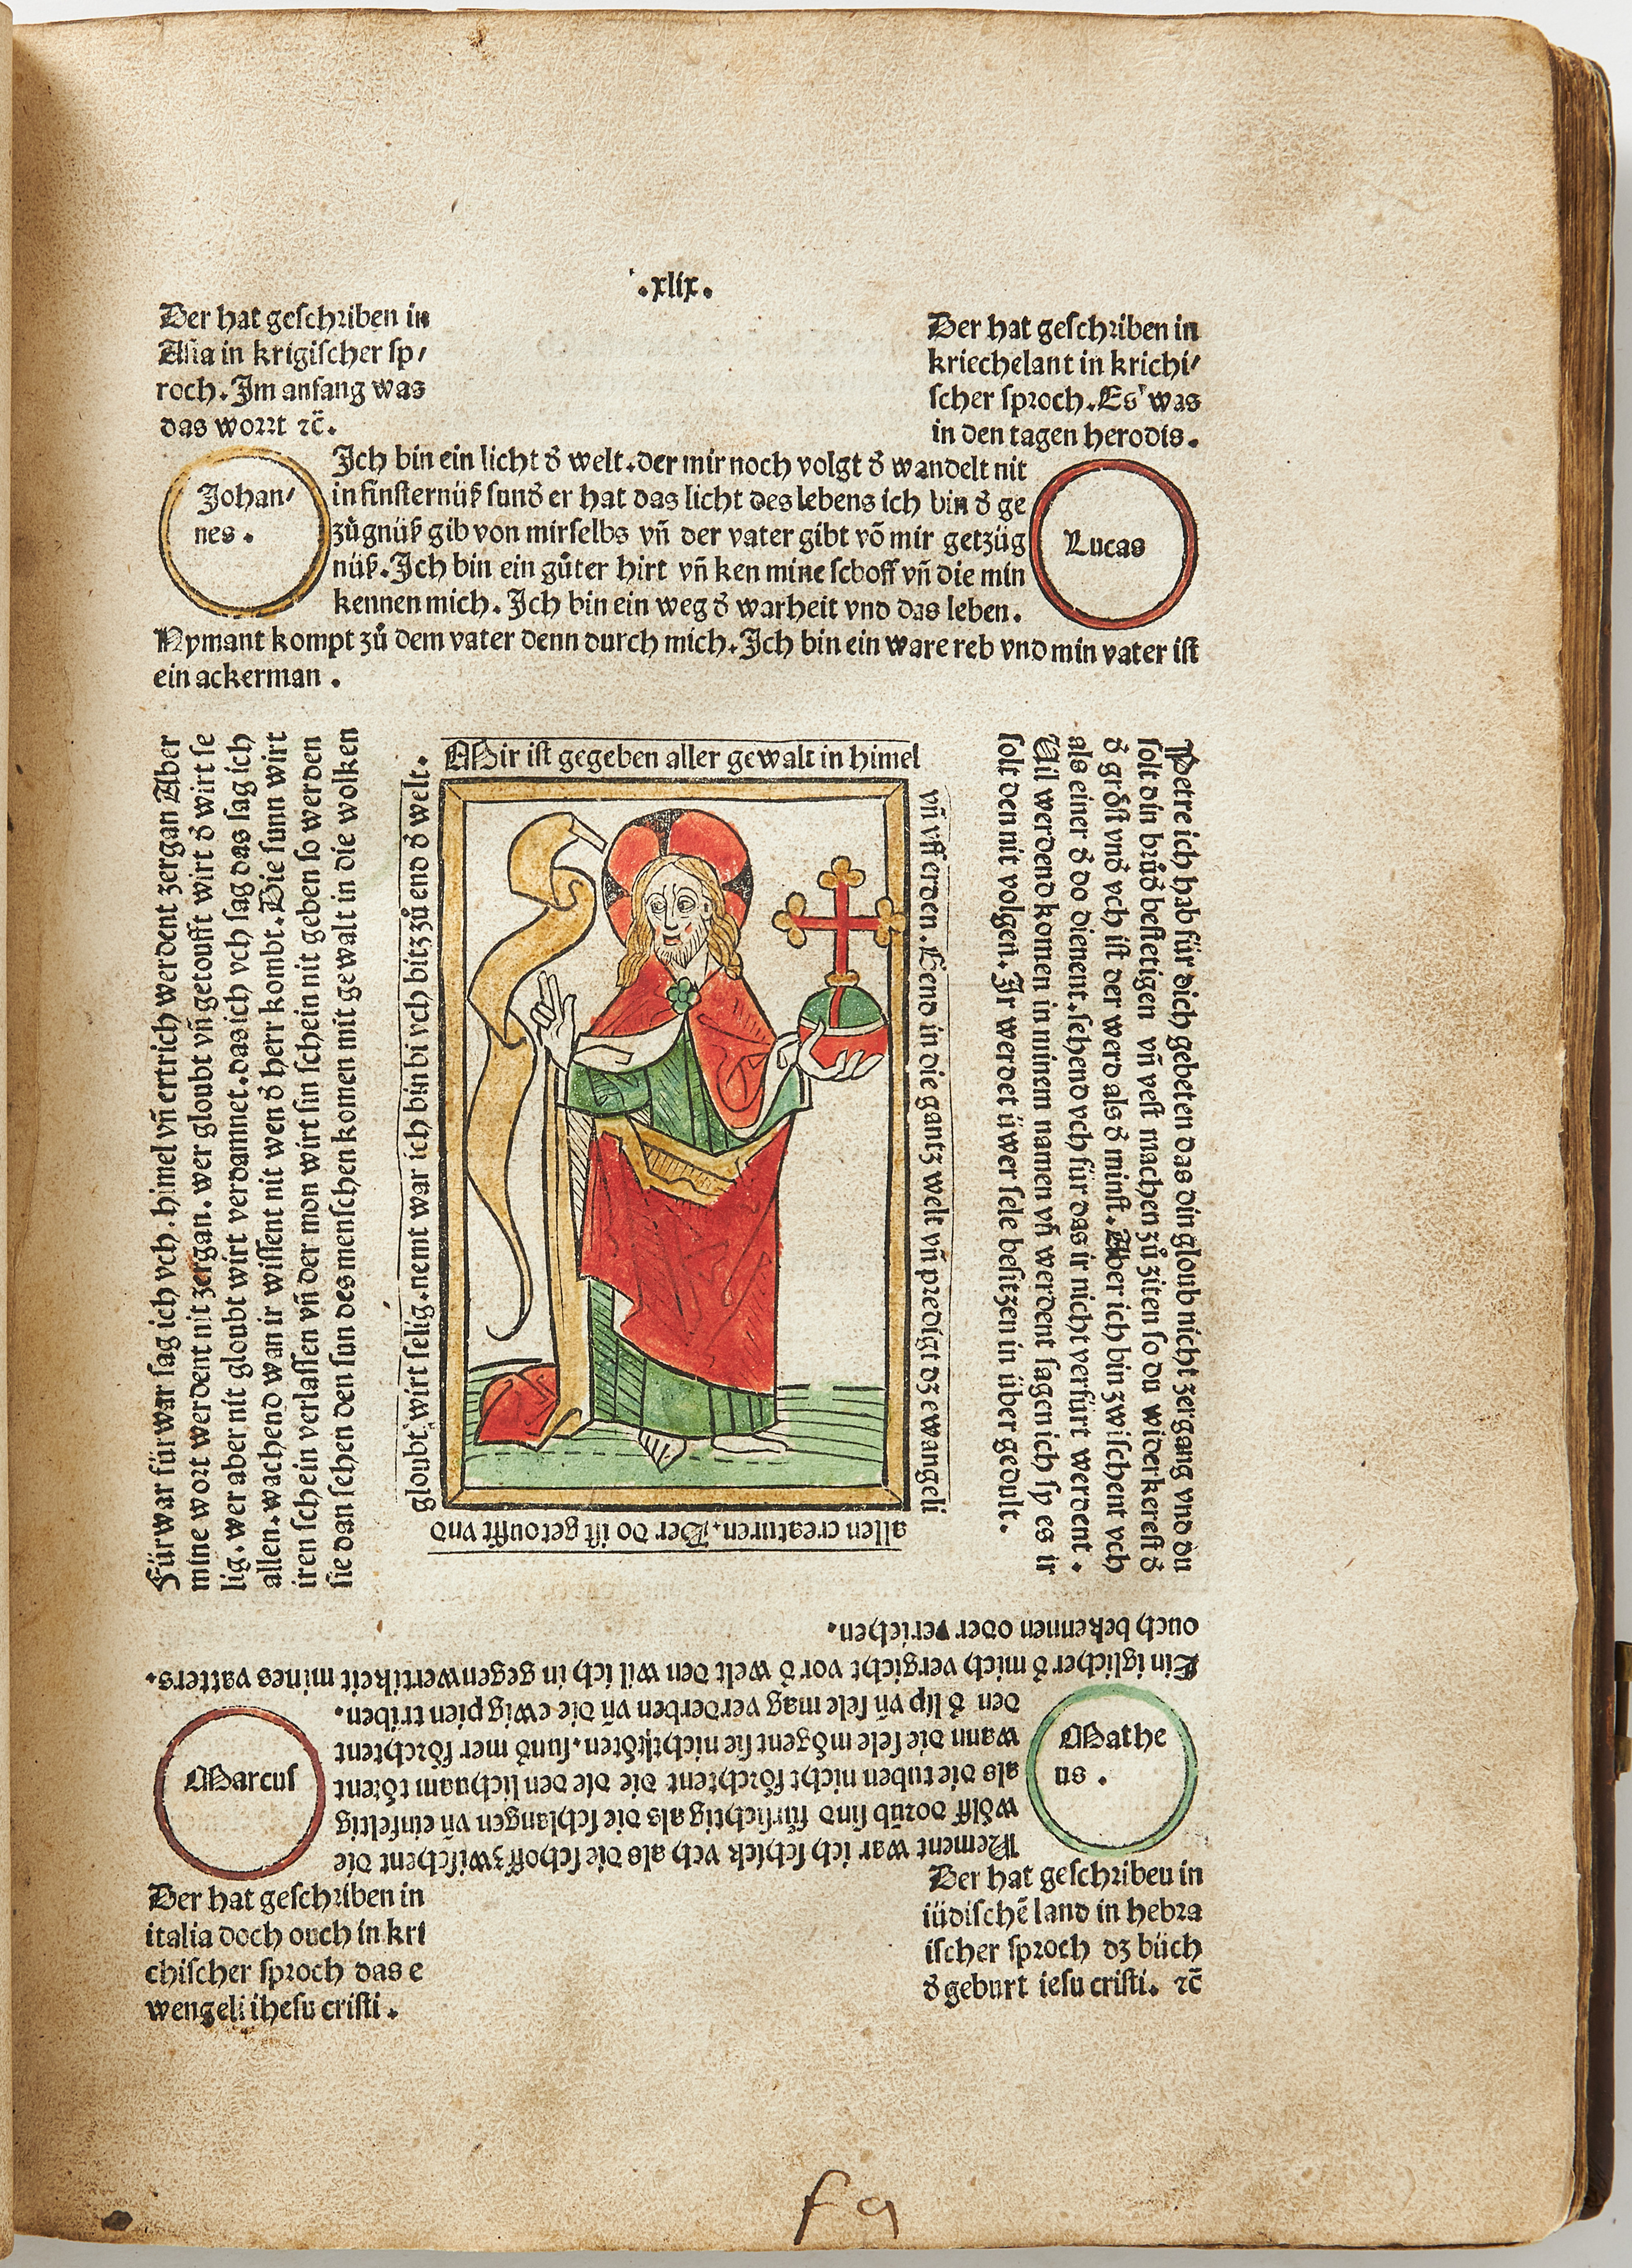 .xlix.
Der hat geschriben in
Asia in krigischer sp/
roch. Im anfang was
das wort ⁊c̄.
Der hat geschriben in
kriechelant in krichi/
scher sproch. Es was
in den tagen herodis.
Johan/
nes.
Lucas
Ich bin ein licht đ welt. der mir noch volgt đ wandelt nit
in finsternüß sunđ er hat das licht des lebens ich bin đ ge
zügnüß gib von mir selbs vñ der vater gibt võ mir getzüg
nüß. Ich bin ein gůter hirt vñ ken mine schoff vñ die min
kennen mich. Ich bin ein weg đ warheit vnd das leben.
Nymant kompt zů dem vater denn durch mich. Ich bin ein ware reb vnd min vater ist
ein ackerman.
Mir ist gegeben aller gewalt in himel
vñ vff erden. Gend in die gantz welt vñ predigt dz ewangeli
allen creaturen. Der do ist getoufft vnd
gloubt, wirt selig. nemt war ich bin bi vch bitz zů end đ welt.
Petre ich hab für dich gebeten das din gloub nicht zergang vnd du
solt din brůđ bestetigen vñ vest machen zů ziten so du widerkerest đ
đ gröst vnđ vch ist der werd als đ minst. Aber ich bin zwischent vch
als einer đ do dienent. sehend vch für das ir nicht verfürt werdent.
Vil werdend komen in minem namen vñ werdent sagen ich sy es ir
solt den nit volgen. Ir werdet üwer sele besitzen in über gedult.
Ein iglicher đ mich vergicht vor đ welt den wil ich in gegenwertikeit mines vatters.
ouch bekennen oder veriehen.
Nement war ich schick vch als die schoff zwischent die
wölff dorũb sind fürsichtig als die schlangen vñ einfeltig
als die tuben nicht förchtent die die den lichnam tötent
wann die sele mögent sie nicht töten. sund mer förchtent
den đ lip vñ sele mag verderben vñ die ewig pien triben.
Fürwar fürwar sag ich vch. himel vñ ertrich werdent zergan Aber
mine wort werdent nit zergan. wer gloubt vñ getoufft wirt đ wirt se
lig. wer aber nit gloubt wirt verdamnet. das ich vch sag das sag ich
allen. wachend wan ir wissent nit wen đ herr kombt. Die sunn wirt
iren schein verlassen vñ der mon wirt sin schein nit geben so werden
sie dan sehen den sun des menschen komen mit gewalt in die wolken
Marcus
Mathe
us.
Der hat geschriben in
italia doch ouch in kri
chischer sproch das e
wengeli ihesu cristi.
Der hat geschriben in
iüdischē land in hebra
ischer sproch dz büch
đ geburt iesu cristi. ⁊c̄
f 9